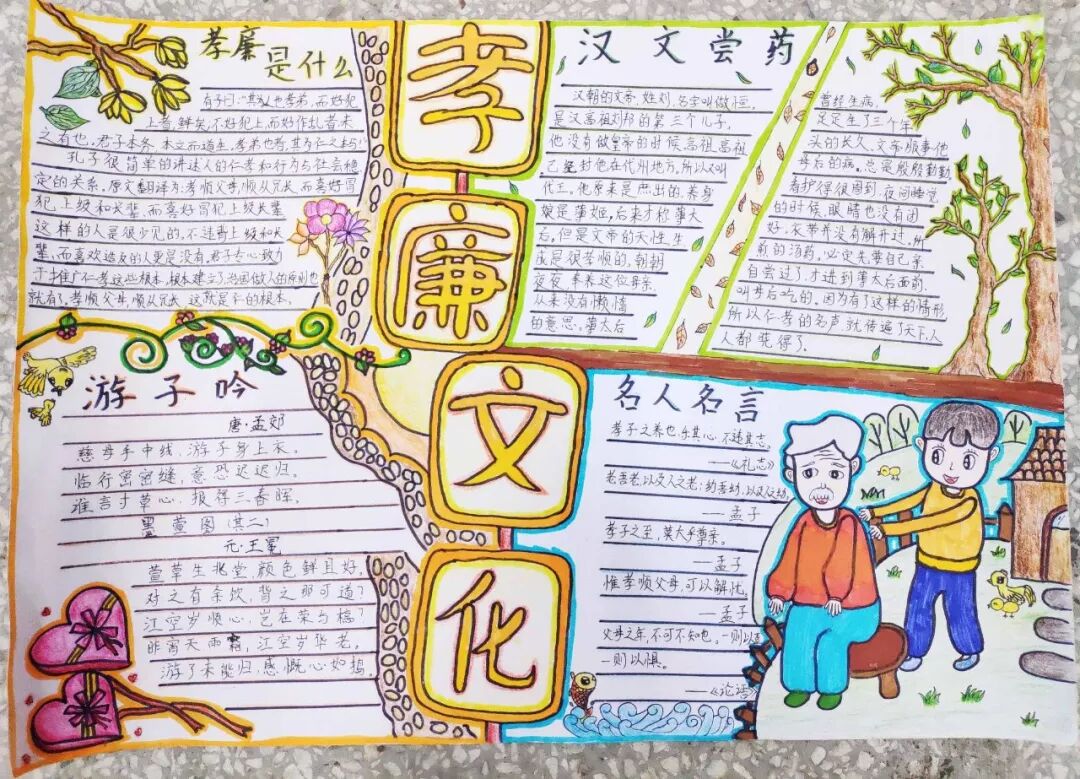 孝廉是什么
有子曰:"其为人也孝弟,而好犯
上者,鲜矣,不好犯上,而好作乱者未
之有也,君子本务,本立而道生,孝弟也者,其为仁之本与!
孔子很简单的讲述人的仁孝和行为与社会稳
定的关系。原文翻译为:孝顺父母,顺从兄长,而喜好冒
犯,上级和长辈,而喜好冒犯上级长辈
这样的人是很少见的,不违再上级和长
辈,而喜欢造反的人更是没有,君子专心致
于推广仁孝这些根本,根本建立了治国做人的原则也
就有了。孝顺父母,顺从兄长,这就是仁的根本。
孝
廉
文
化
汉文尝药
汉朝的文帝,姓刘,名字叫做恒,
是汉高祖刘邦的第三个儿子,
他没有做皇帝的时候,高祖高祖
己经封他在代州地方,所以叫
代王。他原来是庶出的,养身
娘是薄姬,后来才称薄太
后。但是文帝的天性,生
成是很孝顺的,朝朝
夜夜,奉养这位母亲,
从来没有懒惰
的意思,薄太后
曾经生病,
足足生了三个年
头的长久,文帝顺事他
母后的病,总是殷殷勤勤
看护得很周到,夜间睡觉
的时候,眼睛也没有闭
好,衣带并没有解开过,所
煎的汤药,必定先要自己亲
自尝过了,才进到薄太后面前,
叫母后吃的。因为有了这样的情形
所以仁孝的名声,就传遍了天下,人
人都晓得了。
游子吟
唐·孟郊
慈母手中线,游子身上衣,
临行密密缝,意恐迟迟归。
谁言寸草心,报得三春晖。
墨萱图(其二)
元·王冕
萱草生北堂,颜色鲜且好,
对之有余饮,背之那可道?
江空岁顺心,岂在荣与槁?
昨宵天雨霜,江空岁华老。
游子未能归,感慨心如捣。
名人名言
孝子之养也,乐其心,不违其志,
——《礼志》
老吾老,以及人之老;幼吾幼,以及人之幼,
——孟子
孝子之至,莫大乎尊亲。
——孟子
惟孝顺父母,可以解忧。
——孟子
父母之年,不可不知也,一则以喜
一则以惧。
——《论语》